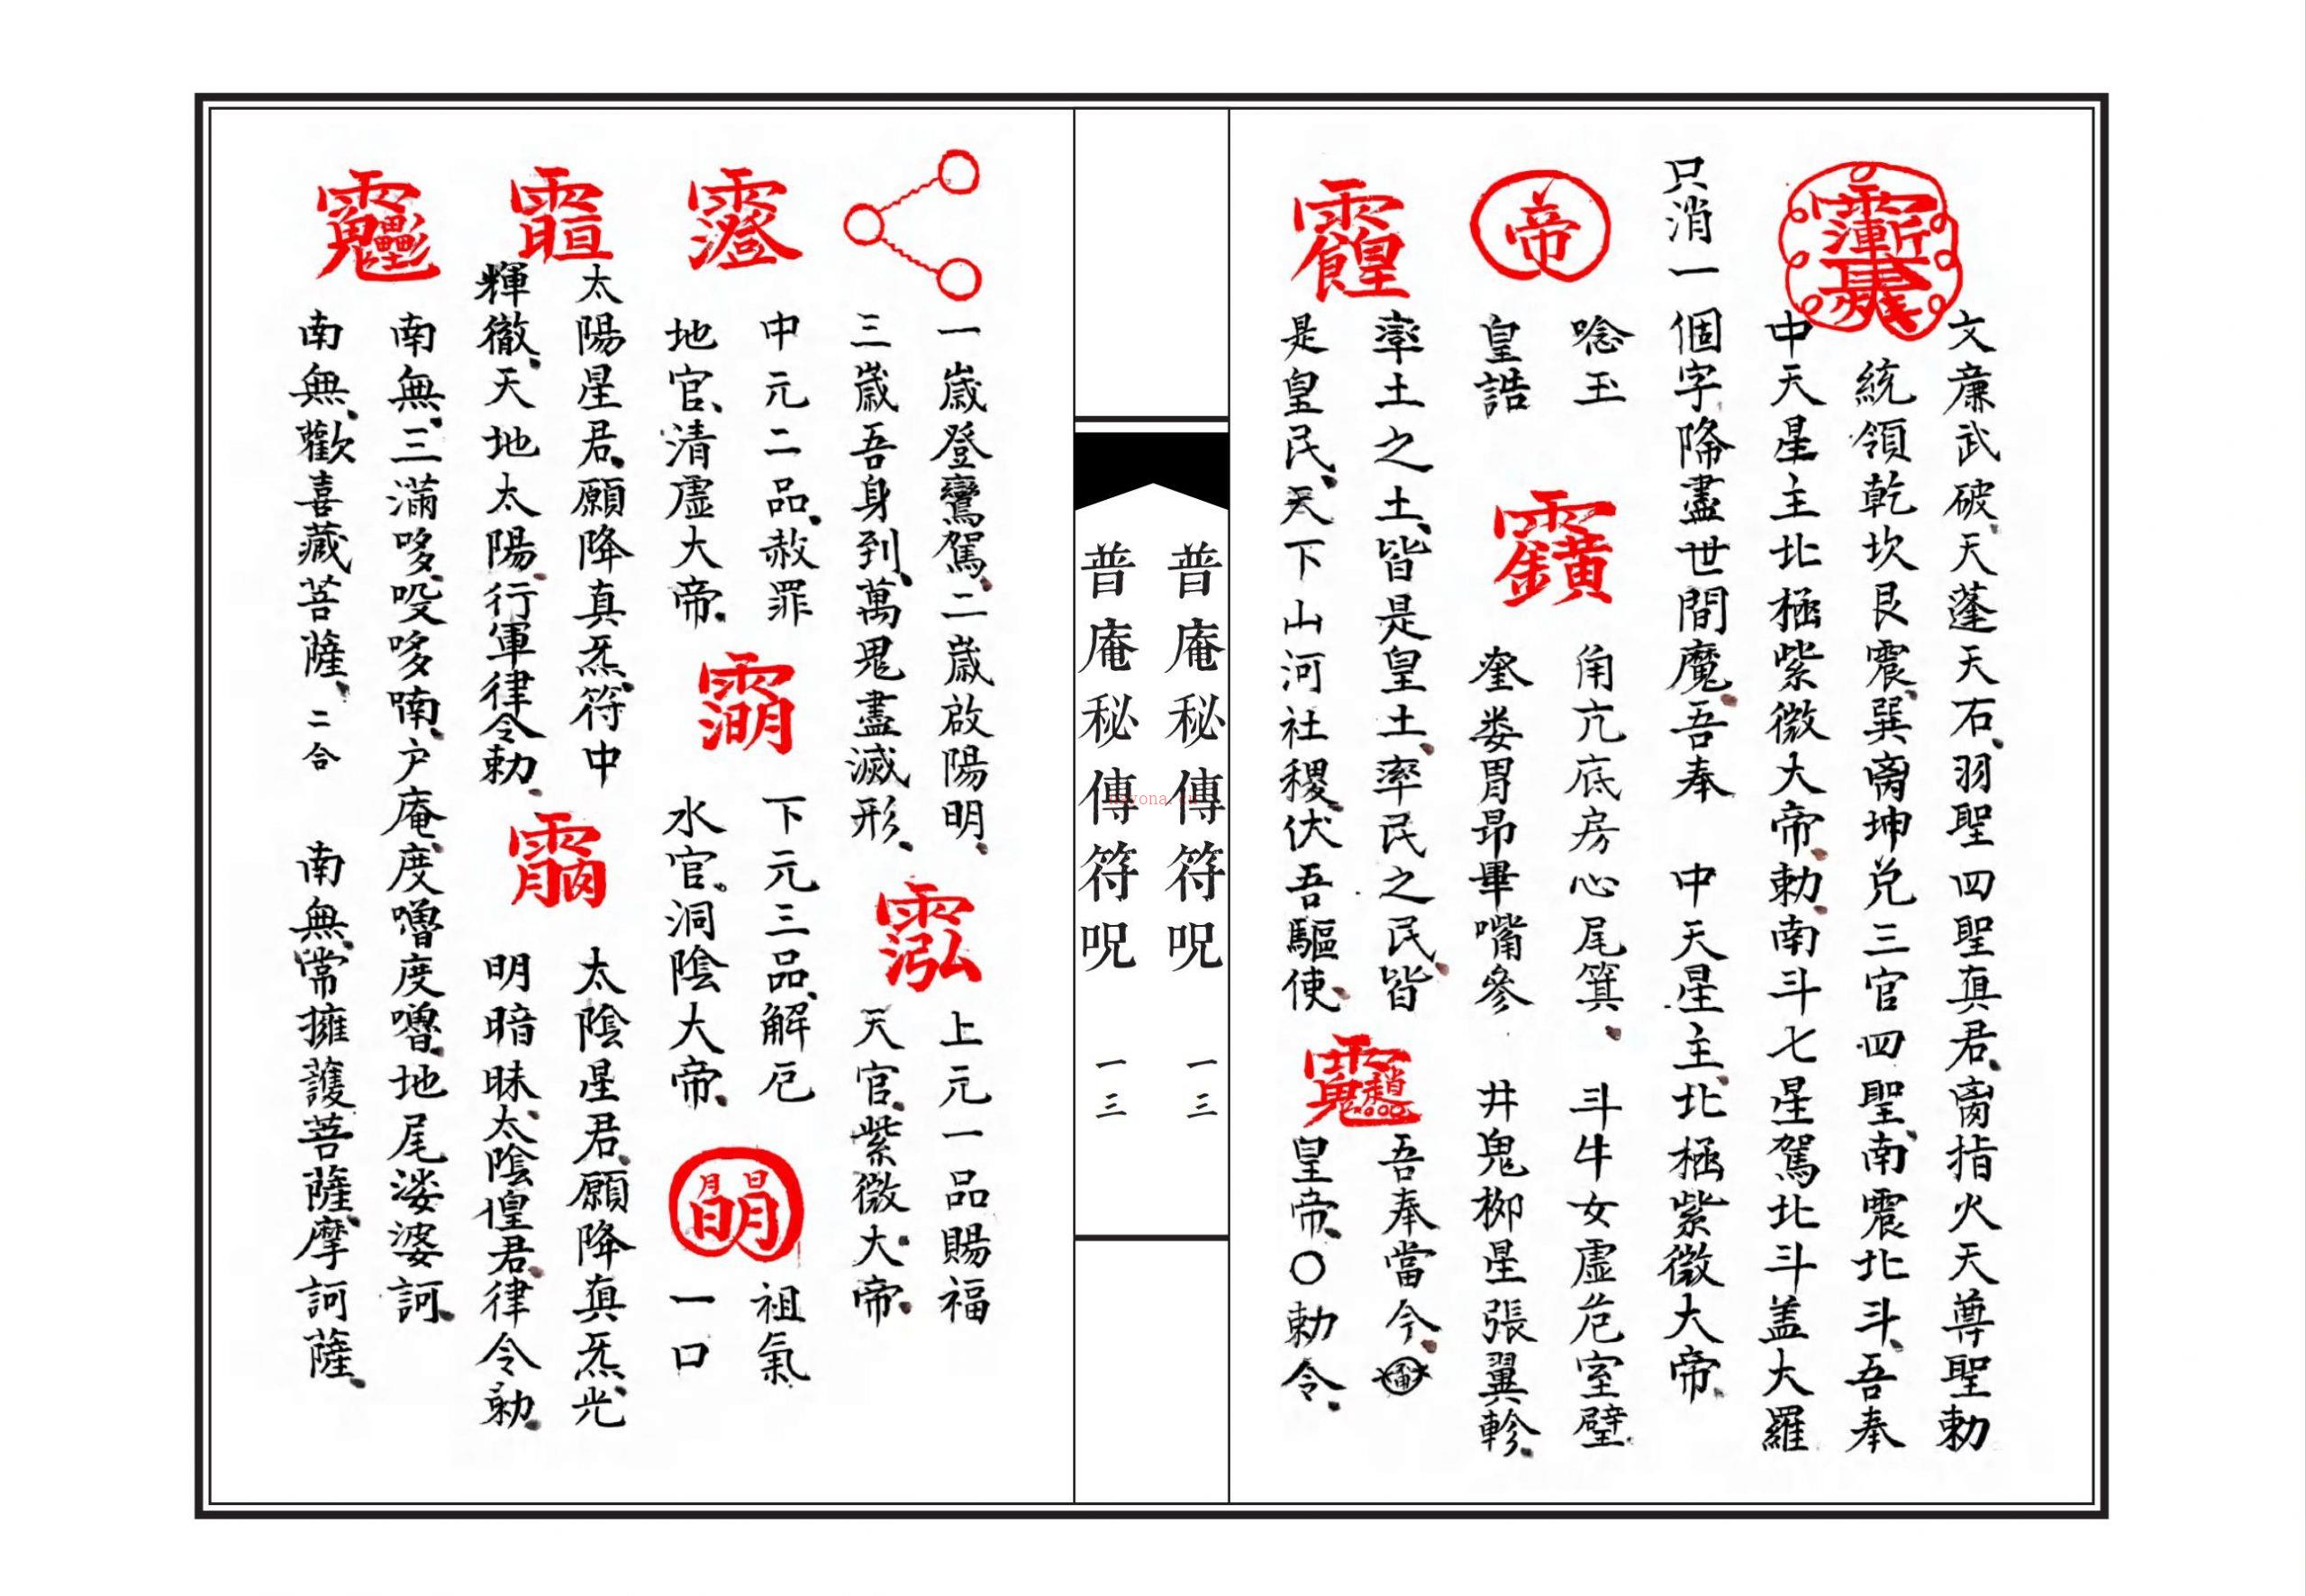 文廉武破天蓬天石羽聖四聖真君离指火天尊聖勅
統領乾坎艮震巽离坤兌三官四聖南震北斗吾奉
中天星主北極紫微大帝勅南斗七星駕北斗盖大羅
只消一個字降盡世間魔吾奉 中天星主北極紫微大帝
帝
唸玉
皇誥
角亢底房心尾箕 斗牛女虛危室壁
奎娄胃昴畢嘴參 井鬼柳星張翼軫
率土之土皆是皇土率民之民皆
是皇民天下山河社稷伏吾驅使
吾奉當今
皇帝〇勅令
普庵秘傳符呪 一三
普庵秘傳符呪 一三
一歲登鸞駕二歲啟陽明
三歲吾身到萬鬼盡滅形
上元一品賜福
天官紫微大帝
中元二品赦罪
地官清虛大帝
下元三品解厄
水官洞陰大帝
祖氣
一口
太陽星君願降真炁符中
輝徹天地太陽行軍律令勅
太陰星君願降真炁光
明暗昧太陰皇君律令勅
南無三滿哆哎哆喃户庵度嚕度嚕地尾婆婆訶
南無歡喜藏菩薩二合 南無常擁護菩薩摩訶薩
novona.com